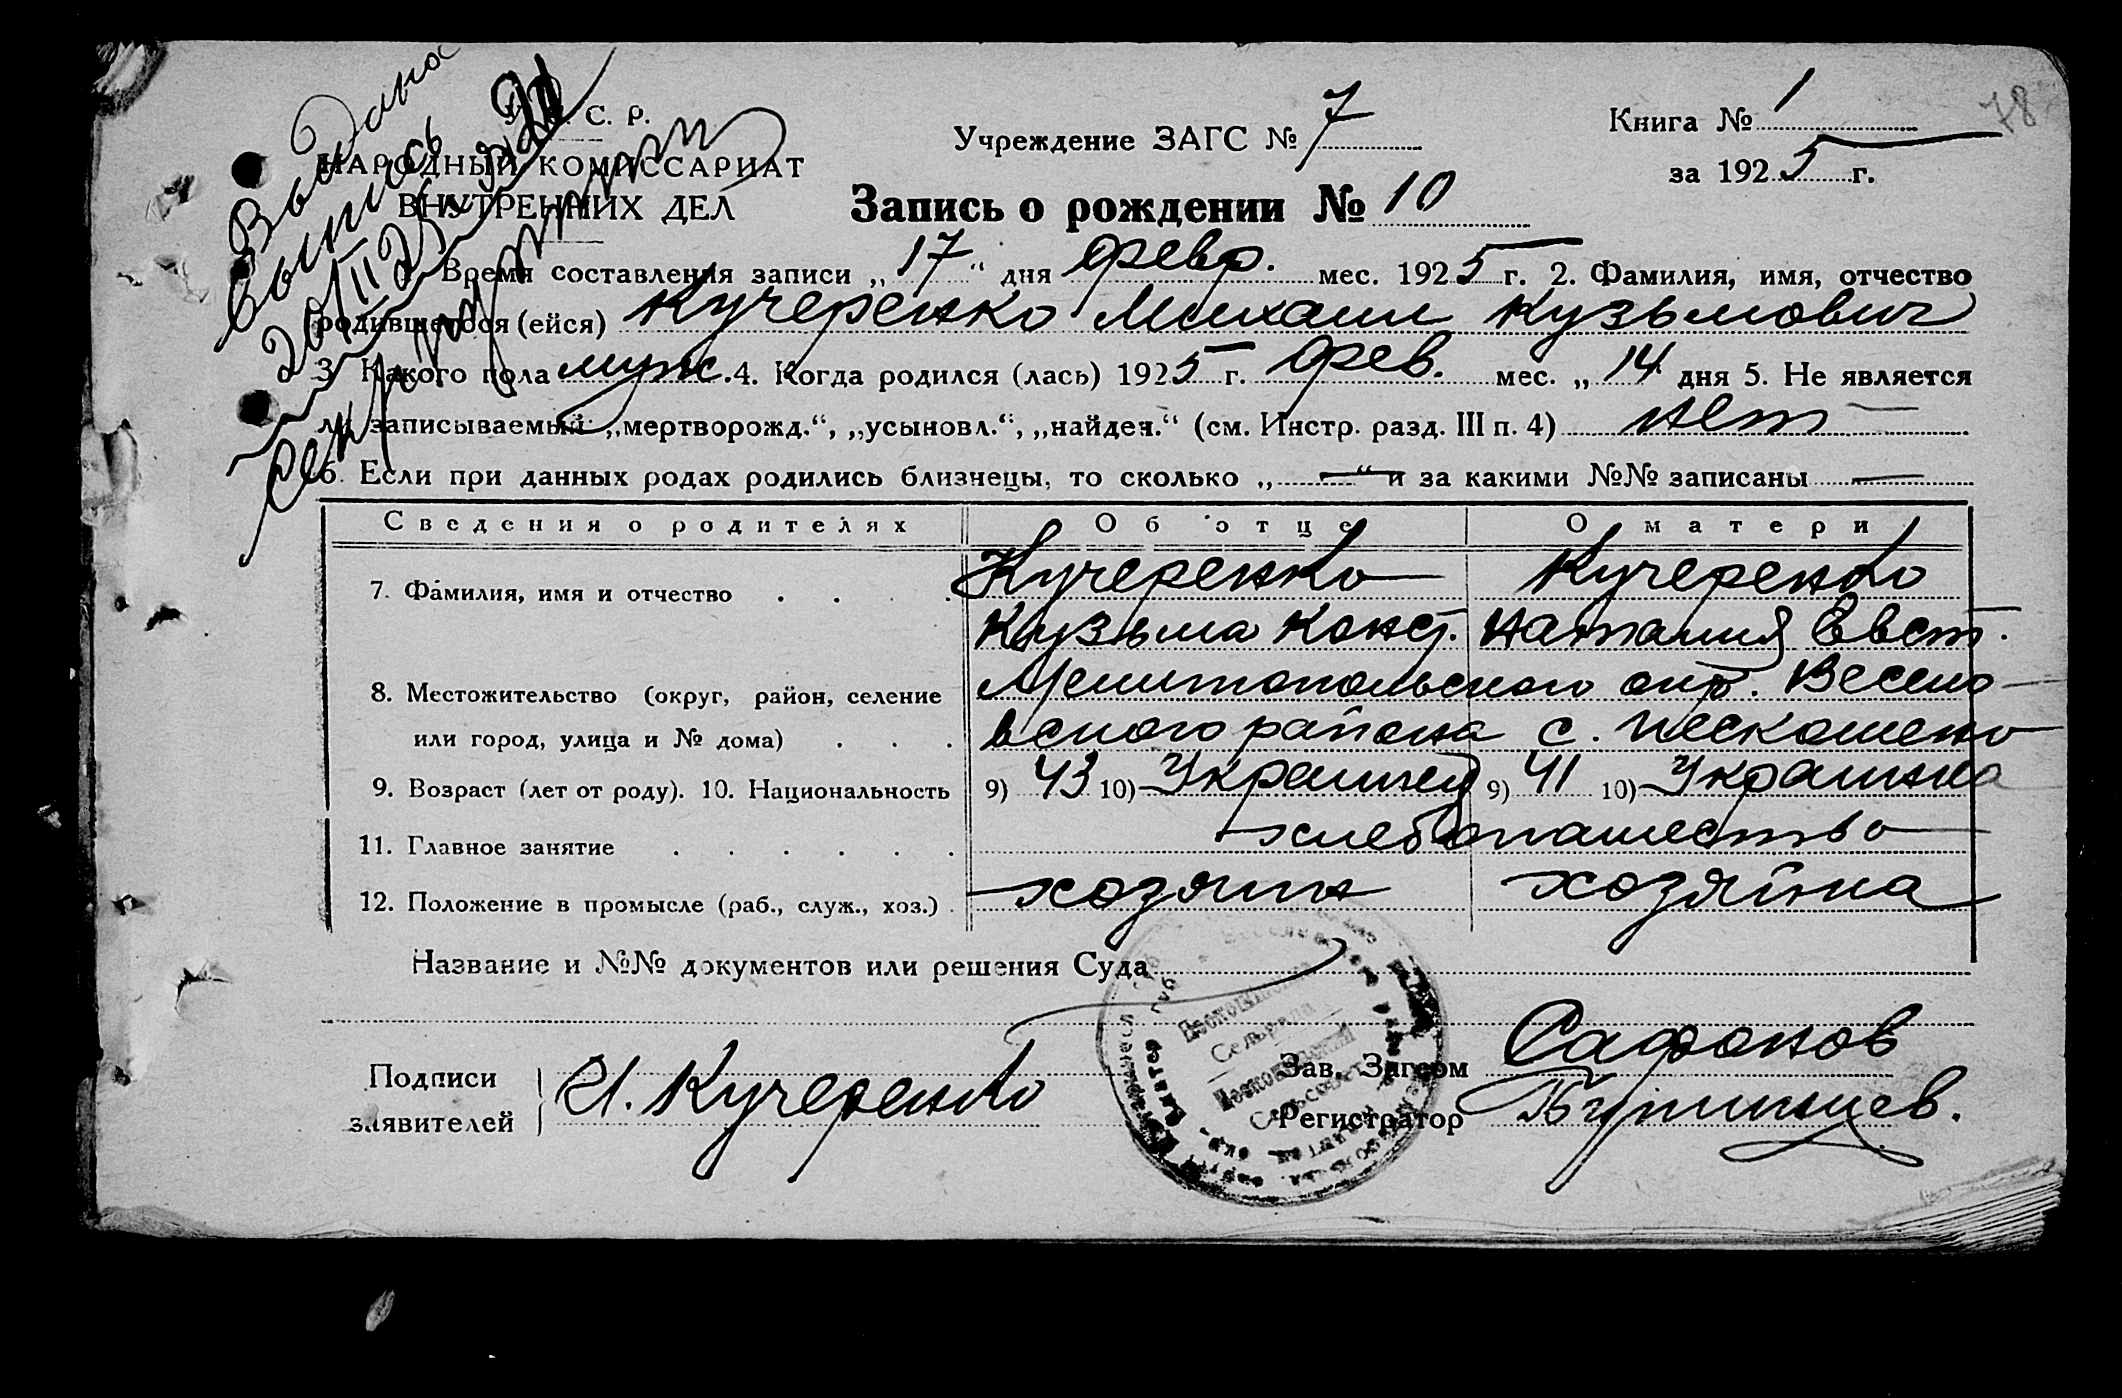 Выдана
выпись
С. Р.
НАРОДНЫЙ КОМИССАРИАТ
ВНУТРЕННИХ ДЕЛ
Учреждение ЗАГС № 7
Книга № 1
78
за 1925 г.
Запись о рождении № 10
Время составления записи „17“ дня февр. мес. 1925 г. 2. Фамилия, имя, отчество
родившегося (ейся) Кучеренко Михаил Кузьмович
3. Какого пола муж. 4. Когда родился (лась) 1925 г. фев. мес. „14 дня 5. Не является
ли записываемый: „мертворожд.“, „усыновл.“, „найден.“ (см. Инстр. разд. III п. 4) нет —
6. Если при данных родах родились близнецы, то сколько „—“ и за какими №№ записаны —
Сведения о родителях Об отце О матери
7. Фамилия, имя и отчество . . . . Кучеренко Кучеренко
Кузьма Конст. Наталия Евст.
8. Местожительство (округ, район, селение Мелитопольского окр. Весело-
или город, улица и № дома) . . . вского района с. Пескошено
9. Возраст (лет от роду). 10. Национальность 9) 43 10) Украинец 9) 41 10) Украинка
11. Главное занятие . . . . . . хлебопашество
12. Положение в промысле (раб., служ., хоз.) . хозяин хозяйка
Название и №№ документов или решения Суда
Сельрада
Сельсовет
Подписи
заявителей
И. Кучеренко
Зав. Загсом Сафонов
Регистратор